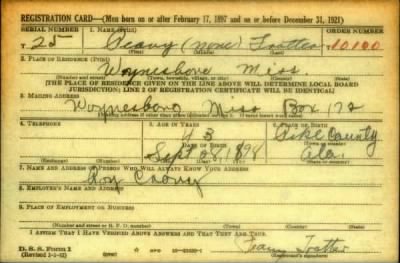 REGISTRATION CARD—(Men born on or after February 17, 1897 and on or before December 31, 1921)
SERIAL NUMBER 1. NAME (Print) ORDER NUMBER
T 25 (None) Trotter 10100
2. PLACE OF RESIDENCE (Print)
Waynesboro Miss.
[THE PLACE OF RESIDENCE GIVEN ON THE LINE ABOVE WILL DETERMINE LOCAL BOARD
JURISDICTION; LINE 2 OF REGISTRATION CERTIFICATE WILL BE IDENTICAL]
3. MAILING ADDRESS
Waynesboro Miss Box 172
[Mailing address if other than place indicated on line 2. If same insert word same]
4. TELEPHONE 5. AGE IN YEARS 6. PLACE OF BIRTH
43 Pike County
DATE OF BIRTH
Sept 08, 1898 Ala.
7. NAME AND ADDRESS OF PERSON WHO WILL ALWAYS KNOW YOUR ADDRESS
8. EMPLOYER'S NAME AND ADDRESS
9. PLACE OF EMPLOYMENT OR BUSINESS
I AFFIRM THAT I HAVE VERIFIED ABOVE ANSWERS AND THAT THEY ARE TRUE.
D. S. S. Form 1
(Revised 1-1-42)
Trotter
(Registrant's signature)